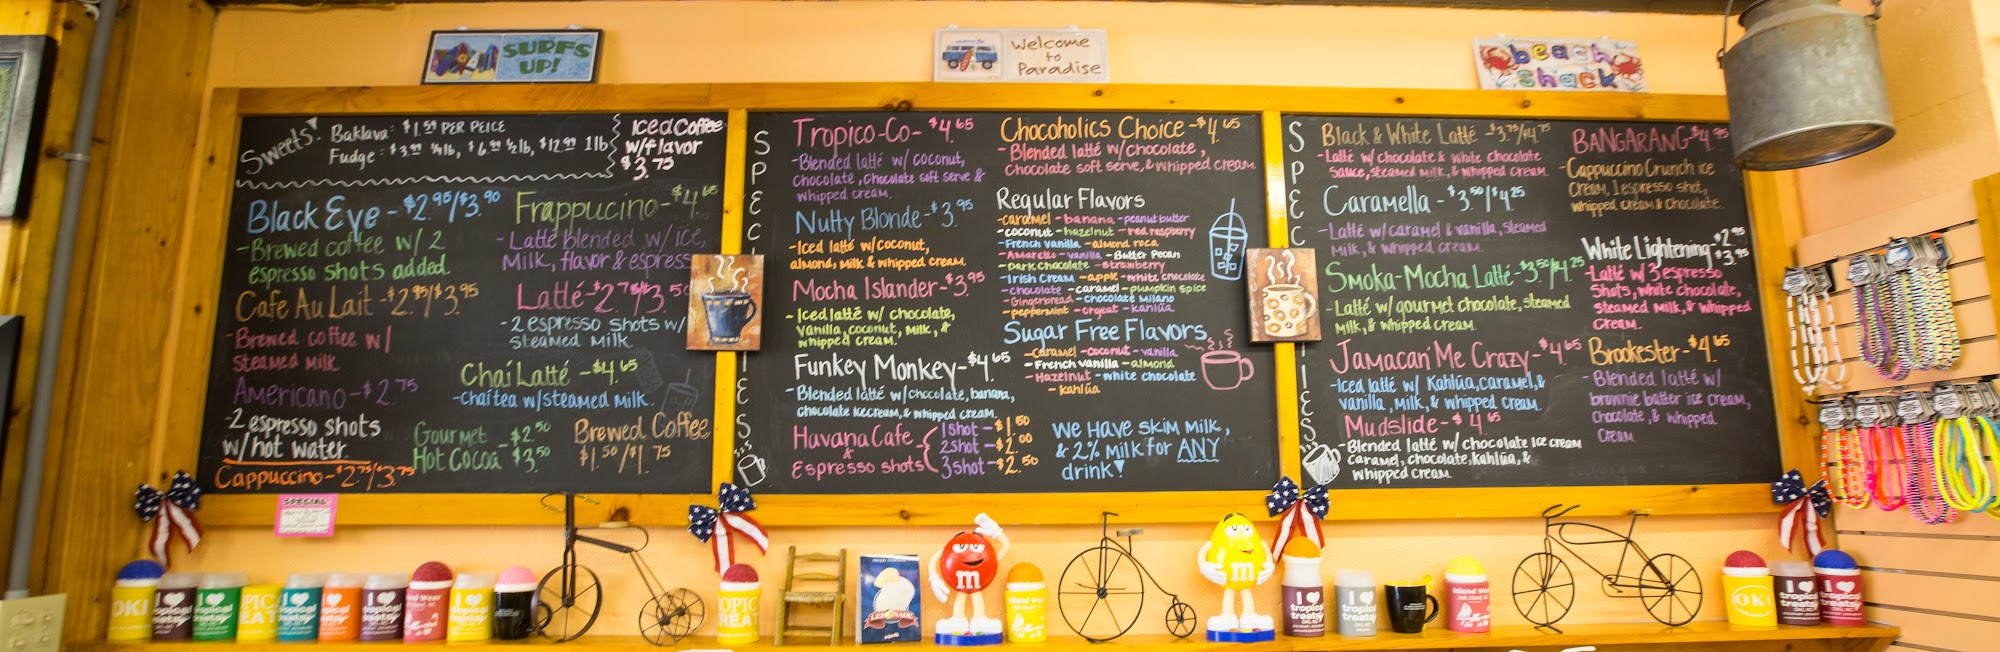 SURFS
UP!
Welcome
to
Paradise
beach
shack
Sweets!
Baklava: $1.59 PER PEICE
Fudge: $3.99 1/4 lb, $6.99 1/2 lb, $12.99 1 lb
Iced Coffee
w/flavor
$3.75
Black Eye - $2.95/$3.90
-Brewed coffee w/ 2
espresso shots added.
Cafe Au Lait - $2.95/$3.95
-Brewed coffee w/
Steamed Milk
Americano - $2.75
-2 espresso shots
w/hot water
Cappuccino - $2.75/$3.75
Frappucino - $4.65
-Latté blended w/ice,
Milk, flavor & espress
Latté - $2.75/$3.50
-2 espresso shots w/
steamed Milk
Chai Latté - $4.65
-chai tea w/steamed Milk.
Gourmet
Hot Cocoa - $2.50
$3.50
Brewed Coffee
$1.50/$1.75
SPECIALTIES
Tropico-Co - $4.65
-Blended latté w/ coconut,
Chocolate, Chocolate soft serve &
whipped cream.
Nutty Blonde - $3.95
-Iced latté w/coconut,
almond, milk & whipped cream.
Mocha Islander - $3.95
-Iced latté w/ chocolate,
vanilla, coconut, milk, &
whipped cream.
Funkey Monkey - $4.65
-Blended latté w/chocolate, banana,
chocolate icecream, & whipped cream.
Havana Cafe
&
Espresso shots
1 shot - $1.50
2 shot - $2.00
3 shot - $2.50
Chocoholics Choice - $4.65
-Blended latté w/chocolate,
Chocolate soft serve, & whipped cream.
Regular Flavors
-caramel -banana -peanut butter
-coconut -hazelnut -red raspberry
-French vanilla -almond roca
-Amaretto -vanilla -Butter Pecan
-Dark Chocolate -strawberry
-Irish Cream -apple -white chocolate
-chocolate -caramel -pumpkin spice
-Gingerbread -chocolate milano
-peppermint -orgeat -kahlúa
Sugar Free Flavors
-caramel -coconut -vanilla
-French vanilla -almond
-Hazelnut -white chocolate
-kahlúa
We Have Skim Milk,
& 2% milk for ANY
drink!
SPECIALTIES
Black & White Latté - $3.75/$4.75
-Latté w/ chocolate & white chocolate
sauce, steamed milk, & whipped cream.
Caramella - $3.50/$4.25
-Latté w/caramel & vanilla, steamed
Milk, & whipped cream.
Smoka-Mocha Latté - $3.50/$4.25
-Latté w/ gourmet chocolate, steamed
milk, & whipped cream.
Jamacan Me Crazy - $4.65
-Iced latté w/ Kahlúa, caramel, &
vanilla, milk, & whipped cream.
Mudslide - $4.65
-Blended latté w/ chocolate ice cream
caramel, chocolate, kahlúa, &
whipped cream.
BANGARANG $4.95
-Cappuccino Crunch ice
cream, 1 espresso shot,
whipped cream & chocolate.
White Lightening - $2.95
$3.95
-Latté w/ 3 espresso
shots, white chocolate,
steamed milk, & whipped
cream.
Brookester - $4.65
-Blended latté w/
brownie batter ice cream,
chocolate, & whipped
cream.
SPECIAL
OKI
I
tropical
treats
LEMONADE
m
m
I
tropical
treats
Island Wear
OKI
I
tropical
treats